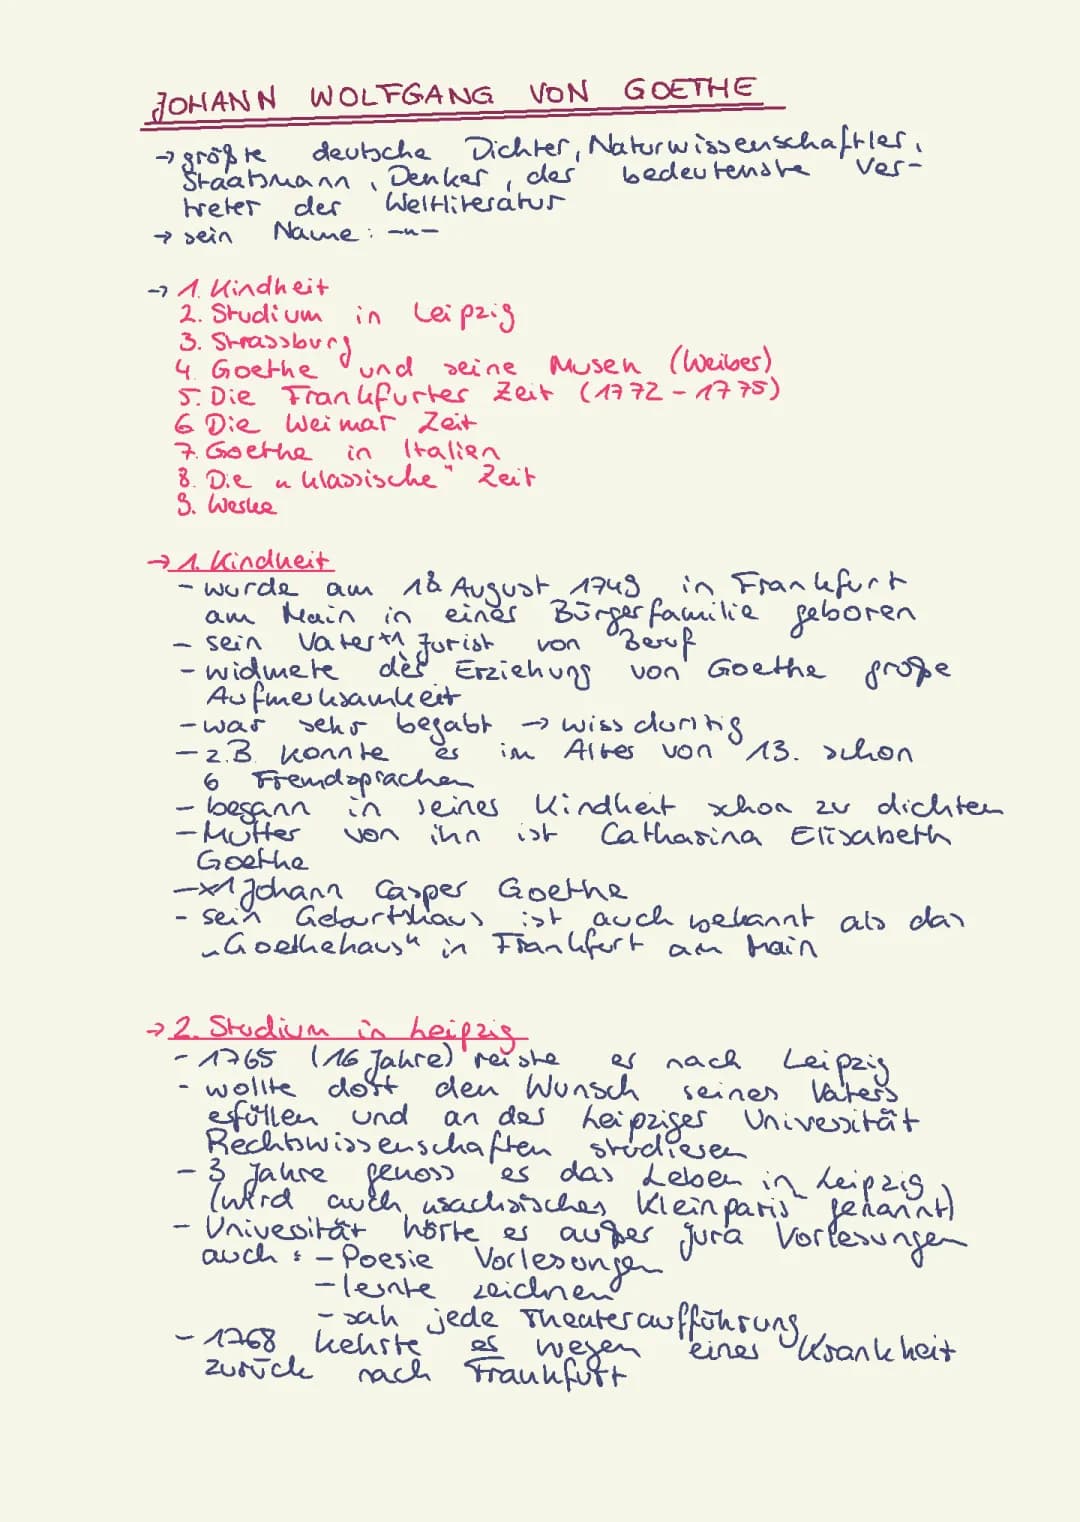 JOHANN WOLFGANG VON GOETHE
→ größte deutsche Dichter, Naturwissenschaftler,
Staatsmann, Denker, der bedeutenste Ver-
treter der Weltliteratur
→ sein Name: -"-
→ 1. Kindheit
2. Studium in Leipzig
3. Strassburg
4. Goethe und seine Musen (Weiber)
5. Die Frankfurter Zeit (1772 - 1775)
6 Die Weimar Zeit
7. Goethe in Italien
8. Die "klassische" Zeit
9. Werke
→ 1. Kindheit
- wurde am 18 August 1749 in Frankfurt
am Main in einer Bürgerfamilie geboren
- sein Vater*1 Jurist von Beruf
- widmete der Erziehung von Goethe große
Aufmerksamkeit
- war sehr begabt → wissdurstig
- z.B. konnte er im Alter von 13. schon
6 Fremdsprachen
- begann in seiner Kindheit schon zu dichten
- Mutter von ihn ist Catharina Elisabeth
Goethe
- *1 Johann Casper Goethe
- sein Geburtshaus ist auch bekannt als das
„Goethehaus" in Frankfurt am Main
→ 2. Studium in Leipzig
- 1765 (16 Jahre) reiste er nach Leipzig
- wollte dort den Wunsch seines Vaters
erfüllen und an der Leipziger Universität
Rechtswissenschaften studieren
- 3 Jahre genoss er das Leben in Leipzig
(wird auch „sächsisches Kleinparis" genannt)
- Univesität hörte er außer Jura Vorlesungen
auch: - Poesie Vorlesungen
- lernte zeichnen
- sah jede Theateraufführung
- 1768 kehrte er wegen einer Krankheit
zurück nach Frankfurt